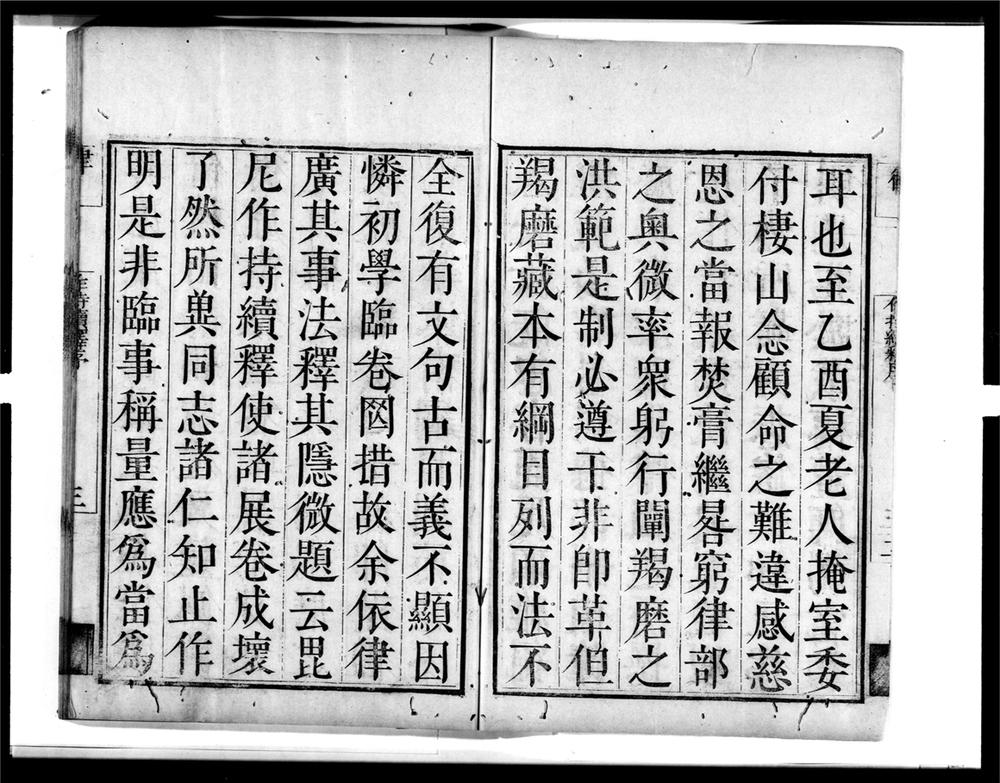 耳也至乙酉夏老人掩室委
付棲山念顧命之難違感慈
恩之當報焚膏繼晷窮律部
之奧微率衆躬行闡羯磨之
洪範是制必遵于非卽革但
羯磨藏本有綱目列而法不
全復有文句古而義不顯因
憐初學臨卷罔措故余依律
廣其事法釋其隱微題云毘
尼作持續釋使諸展卷成壞
了然所兾同志諸仁知止作
明是非臨事稱量應爲當爲
三